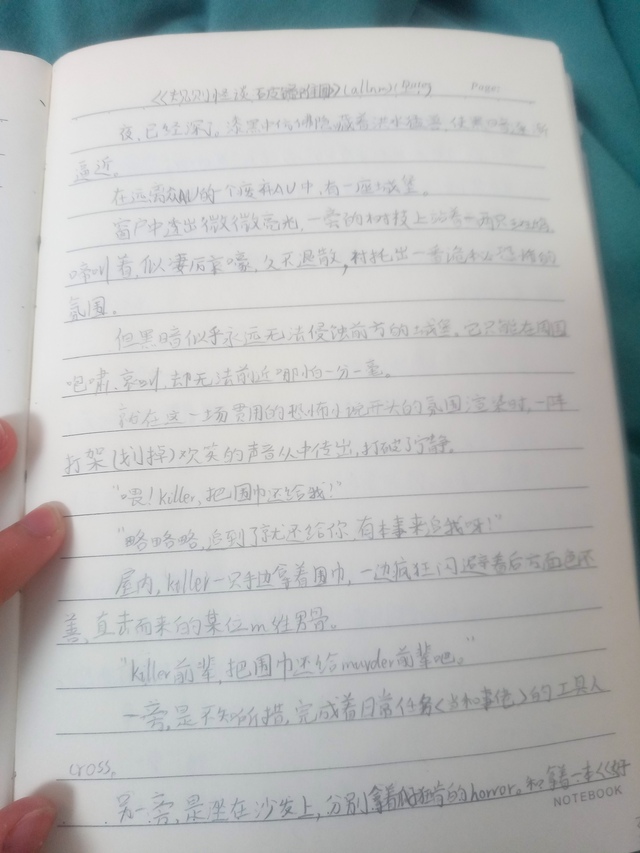 (allnm) Page:
夜,已经深了。漆黑中仿佛隐藏着洪水猛兽,
逼近。
在远离众AU的一个废弃AU中,有一座城堡。
窗户中透出微微亮光,一旁的树枝上站着一两只
啼叫着,似凄厉哀嚎,久久不散,衬托出一番
氛围。
但黑暗似乎永远无法侵蚀前方的城堡,它只能在周围
咆啸,哀叫,却无法前近哪怕一分一毫。
就在这一场惯用的恐怖小说开头的氛围渲染时,一阵
打架(划掉)欢笑的声音从中传出,打破了宁静。
“喂!killer,把围巾还给我!”
“略略略,追到了就还给你,有本事来追我呀!”
屋内,killer一只手边拿着围巾,一边疯狂闪避着后方面色不
善,直击而来的某位m姓男骨。
“killer前辈,把围巾还给murder前辈吧。”
一旁,是不知所措,完成着日常任务<当和事佬>的工具人
cross。
另一旁,是坐在沙发上,分别拿着 的horror。和拿着一本《好
NOTEBOOK